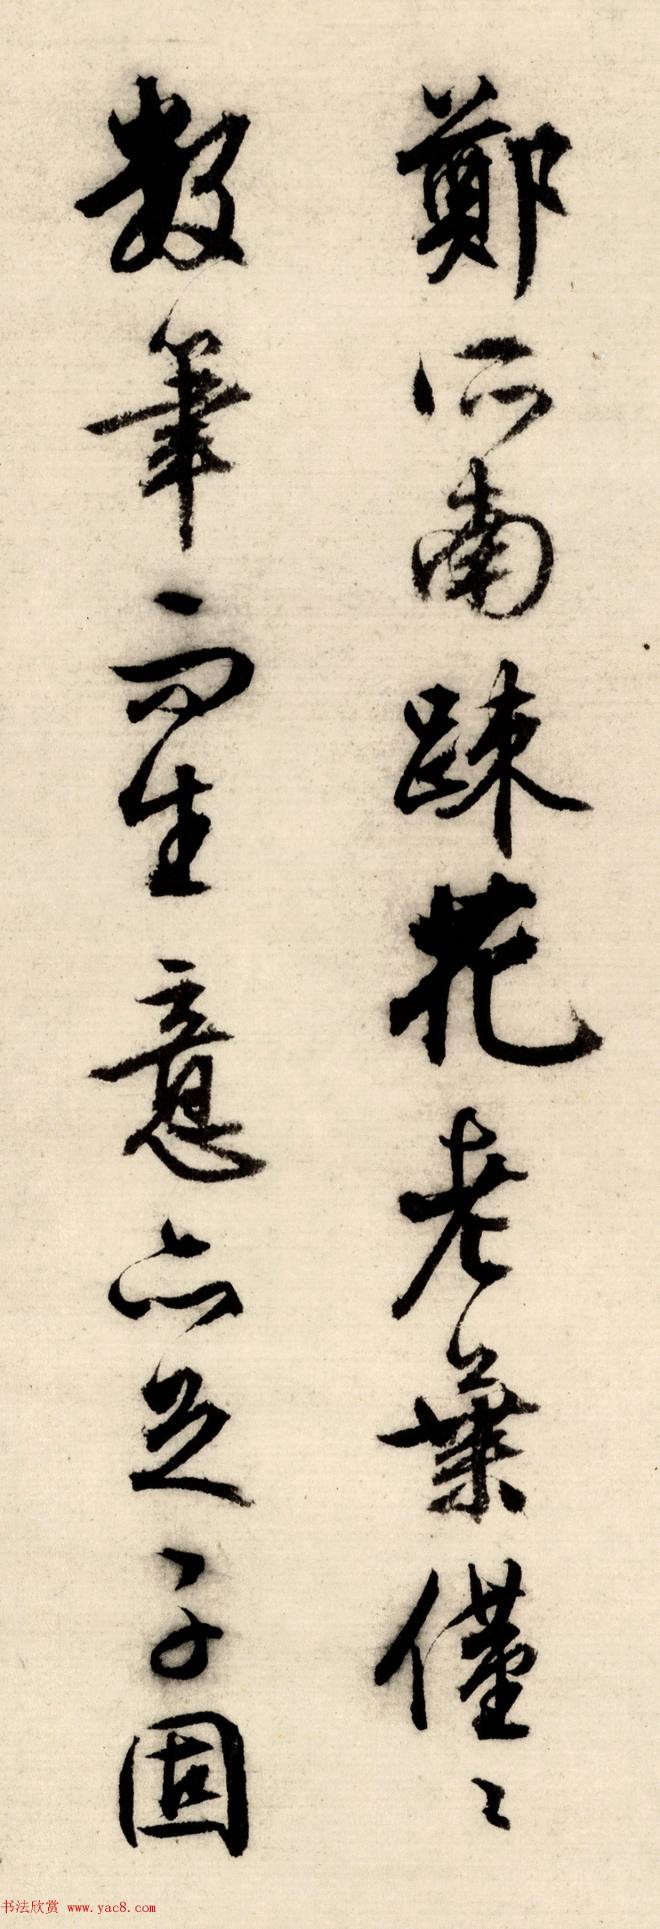 鄭所南踈花老葉僅〻
數筆而生意亦足子固
书法欣赏 www.yac8.com